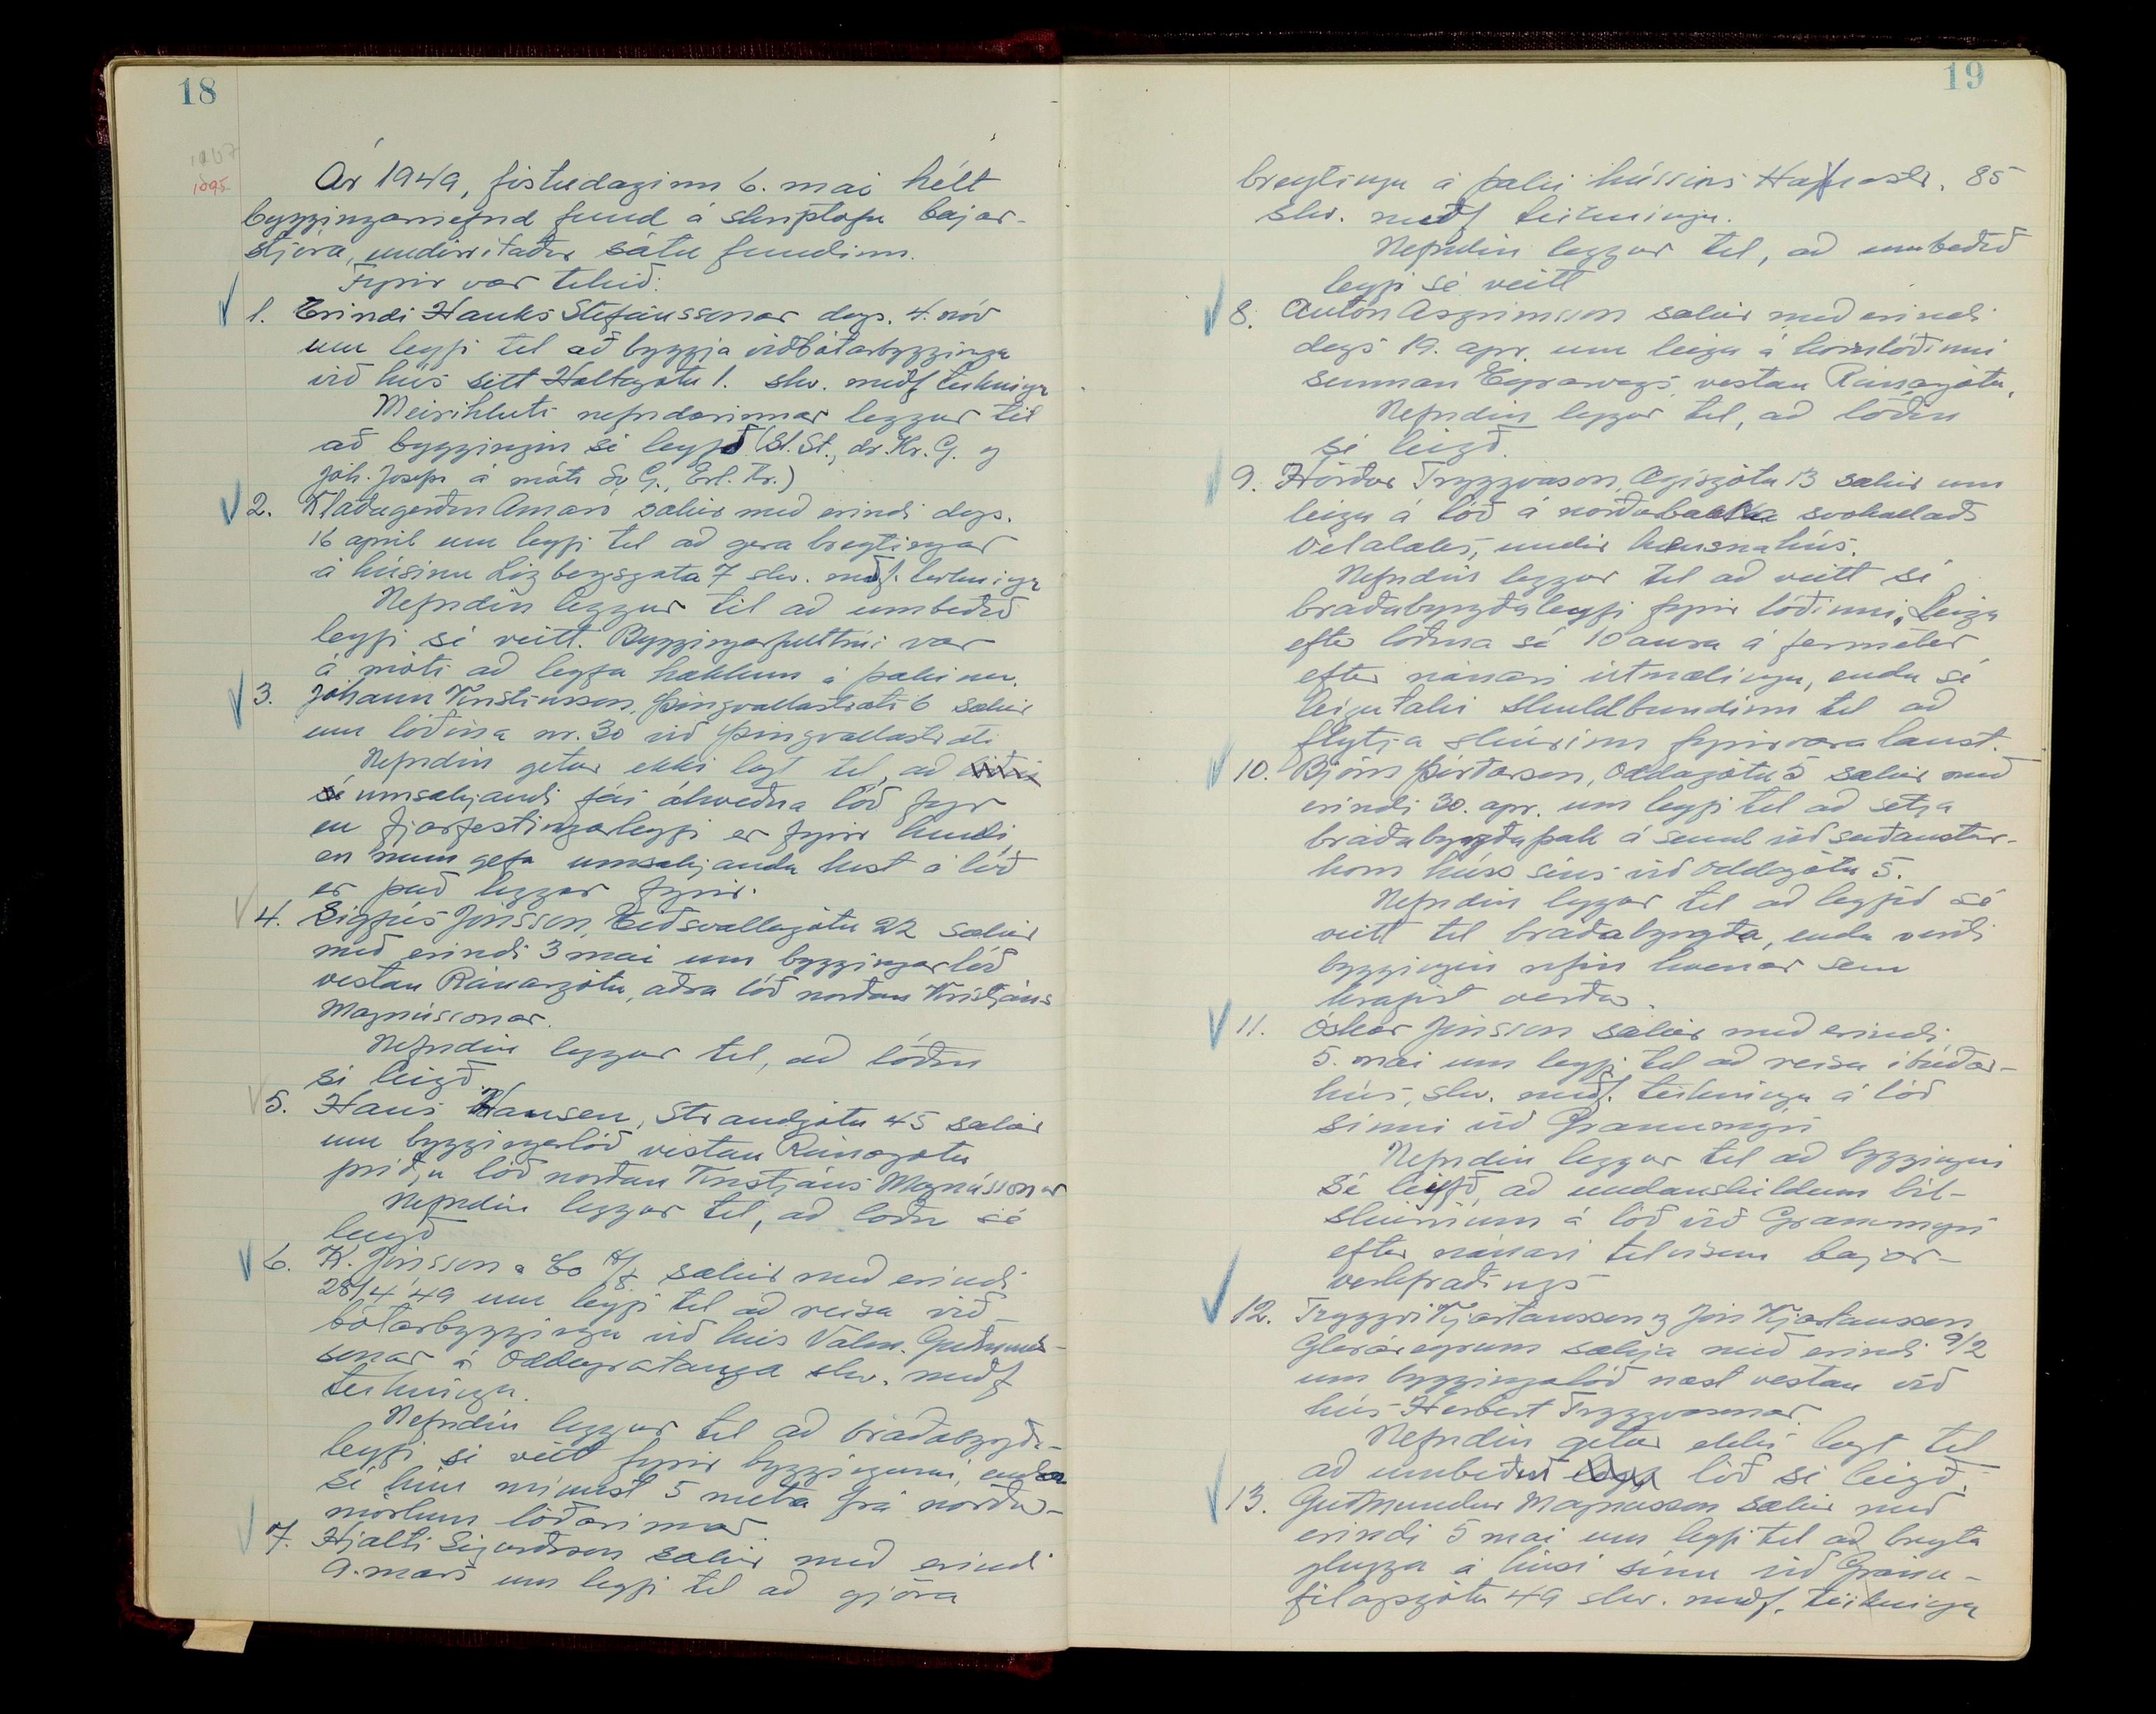 18
1095
Ár 1949, föstudaginn 6. maí hélt
byggingarnefnd fund á skriptofu bæjar-
stjóra, undirritaðir sátu fundinn.
Fyrir var tekið:
1. Erindi Hauks Stefánssonar dags. 4. nóv
um leyfi til að byggja viðbótarbyggingu
við hús sitt Holtagötu 1. skv. meðf teikningu
Meirihluti nefndarinnar leggur til
að byggingin sé leyfð (St. St., dr. Kr. G. og
Jóh. Joseps á móti Sv G., Erl. Fr.)
2. Klæðagerðin Amaro sækir með erindi dags.
16 apríl um leyfi til að gera breytingar
á húsinu Lögbergsgata 7 skv. meðf. teikningu
Nefndin leggur til að umbeðið
leyfi sé veitt. Byggingarfulltrúi var
á móti að leyfa hakkum á þakinu.
3. Jóhann Kristinsson, Þingvallastræti 6 sækir
um lóðina nr. 30 við Þingvallastræti
Nefndin getur ekki lagt til, að
sé umsækjandi fái ákveðna lóð fyr
en fjárfestingarleyfi er fyrir hendi,
en mun gefa umsækjanda kost á lóð
er það liggur fyrir.
4. Sigfús Jónsson, Eiðsvallagötu 22 sækir
með erindi 3 maí um byggingarlóð
vestan Ránargötu, aðra lóð norðan Kristjáns
Magnússonar.
Nefndin leggur til, að lóðin
sé leigð.
5. Hans Hansen, Strandgötu 45 sækir
um byggingarlóð vestan Ránargötu
þriðju lóð norðan Kristjáns Magnússonar
Nefndin leggur til, að lóðin sé
leigð
6. K. Jónsson & Co h/f. sækir með erindi
28/4 '49 um leyfi til að reisa við-
bótarbyggingu við hús Valm. Guðmunds-
sonar á Oddeyrartanga skv. meðf
teikningu.
Nefndin leggur til að bráðabyrgða-
leyfi sé veitt fyrir byggingunni, enda
sé hún minnst 5 metra frá norður-
mörkum lóðarinnar.
7. Hjalti Sigurðsson sækir með erindi
9. mars um leyfi til að gjöra
19
breytingu á þaki hússins Hafnarstr. 85
skv. meðf teikningu.
Nefndin leggur til, að umbeðið
leyfi sé veitt
8. Anton Ásgrímsson sækir með erindi
dags 19. apr. um leigu á hornlóðinni
sunnan Eyrarvegs, vestan Ránargötu,
Nefndin leggur til, að lóðin
sé leigð.
9. Hörður Tryggvason, Ægisgötu 13 sækir um
leigu á lóð á norðurbakka svokallaðs
Vélalæks, undir hænsnahús.
Nefndin leggur til að veitt sé
bráðabyrgðaleyfi fyrir lóðinni. Leiga
eftir lóðina sé 10 aura á fermeter
eftir nánari útmælingu, enda sé
leigutaki skuldbundinn til að
flytja skúrinn fyrirvaralaust.
10. Björn Þórðarson, Oddagötu 5 sækir með
erindi 30. apr. um leyfi til að setja
bráðabyrgðaþak á skúr við suðaustur-
horn húss síns við Oddagötu 5.
Nefndin leggur til að leyfið sé
veitt til bráðabyrgða, enda verði
byggingin rifin hvenær sem
krafist verður.
11. Óskar Jónsson sækir með erindi
5. maí um leyfi til að reisa íbúðar-
hús, skv. meðf. teikningu á lóð
sinni við Grænumýri
Nefndin leggur til að byggingin
sé leyfð, að undanskildum bíl-
skúrnum á lóð við Grænumýri
eftir nánari tilvísun bæjar-
verkfræðings
12. Tryggvi Kjartansson og Jón Kjartansson
Gleráreyrum sækja með erindi 9/2
um byggingalóð næst vestan við
hús Herbert Tryggvasonar.
Nefndin getur ekki lagt til
að umbeðin lóð sé leigð.
13. Guðmundur Magnússon sækir með
erindi 5 maí um leyfi til að breyta
glugga á húsi sínu við Gránu-
félagsgötu 49 skv. meðf. teikningu